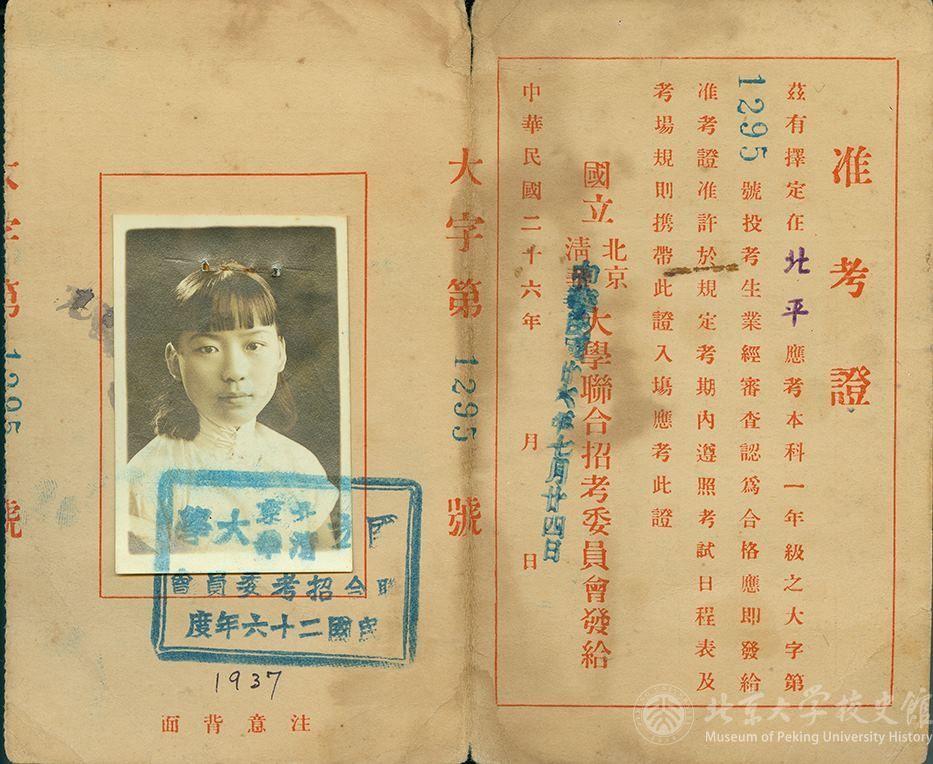 准考證
茲有擇定在北平應考本科一年級之大字第
1295號投考生業經審查認爲合格應即發給
准考證准許於規定考期內遵照考試日程表及
考場規則携帶此證入塲應考此證
國立北京清華大學聯合招考委員會發給
中華民國二十六年 月 日
年七月廿四日
大字第1295號
大字第1295號
大學
聯合招考委員會
民國二十六年度
1937
注意背面
北京大学校史馆
Museum of Peking University History